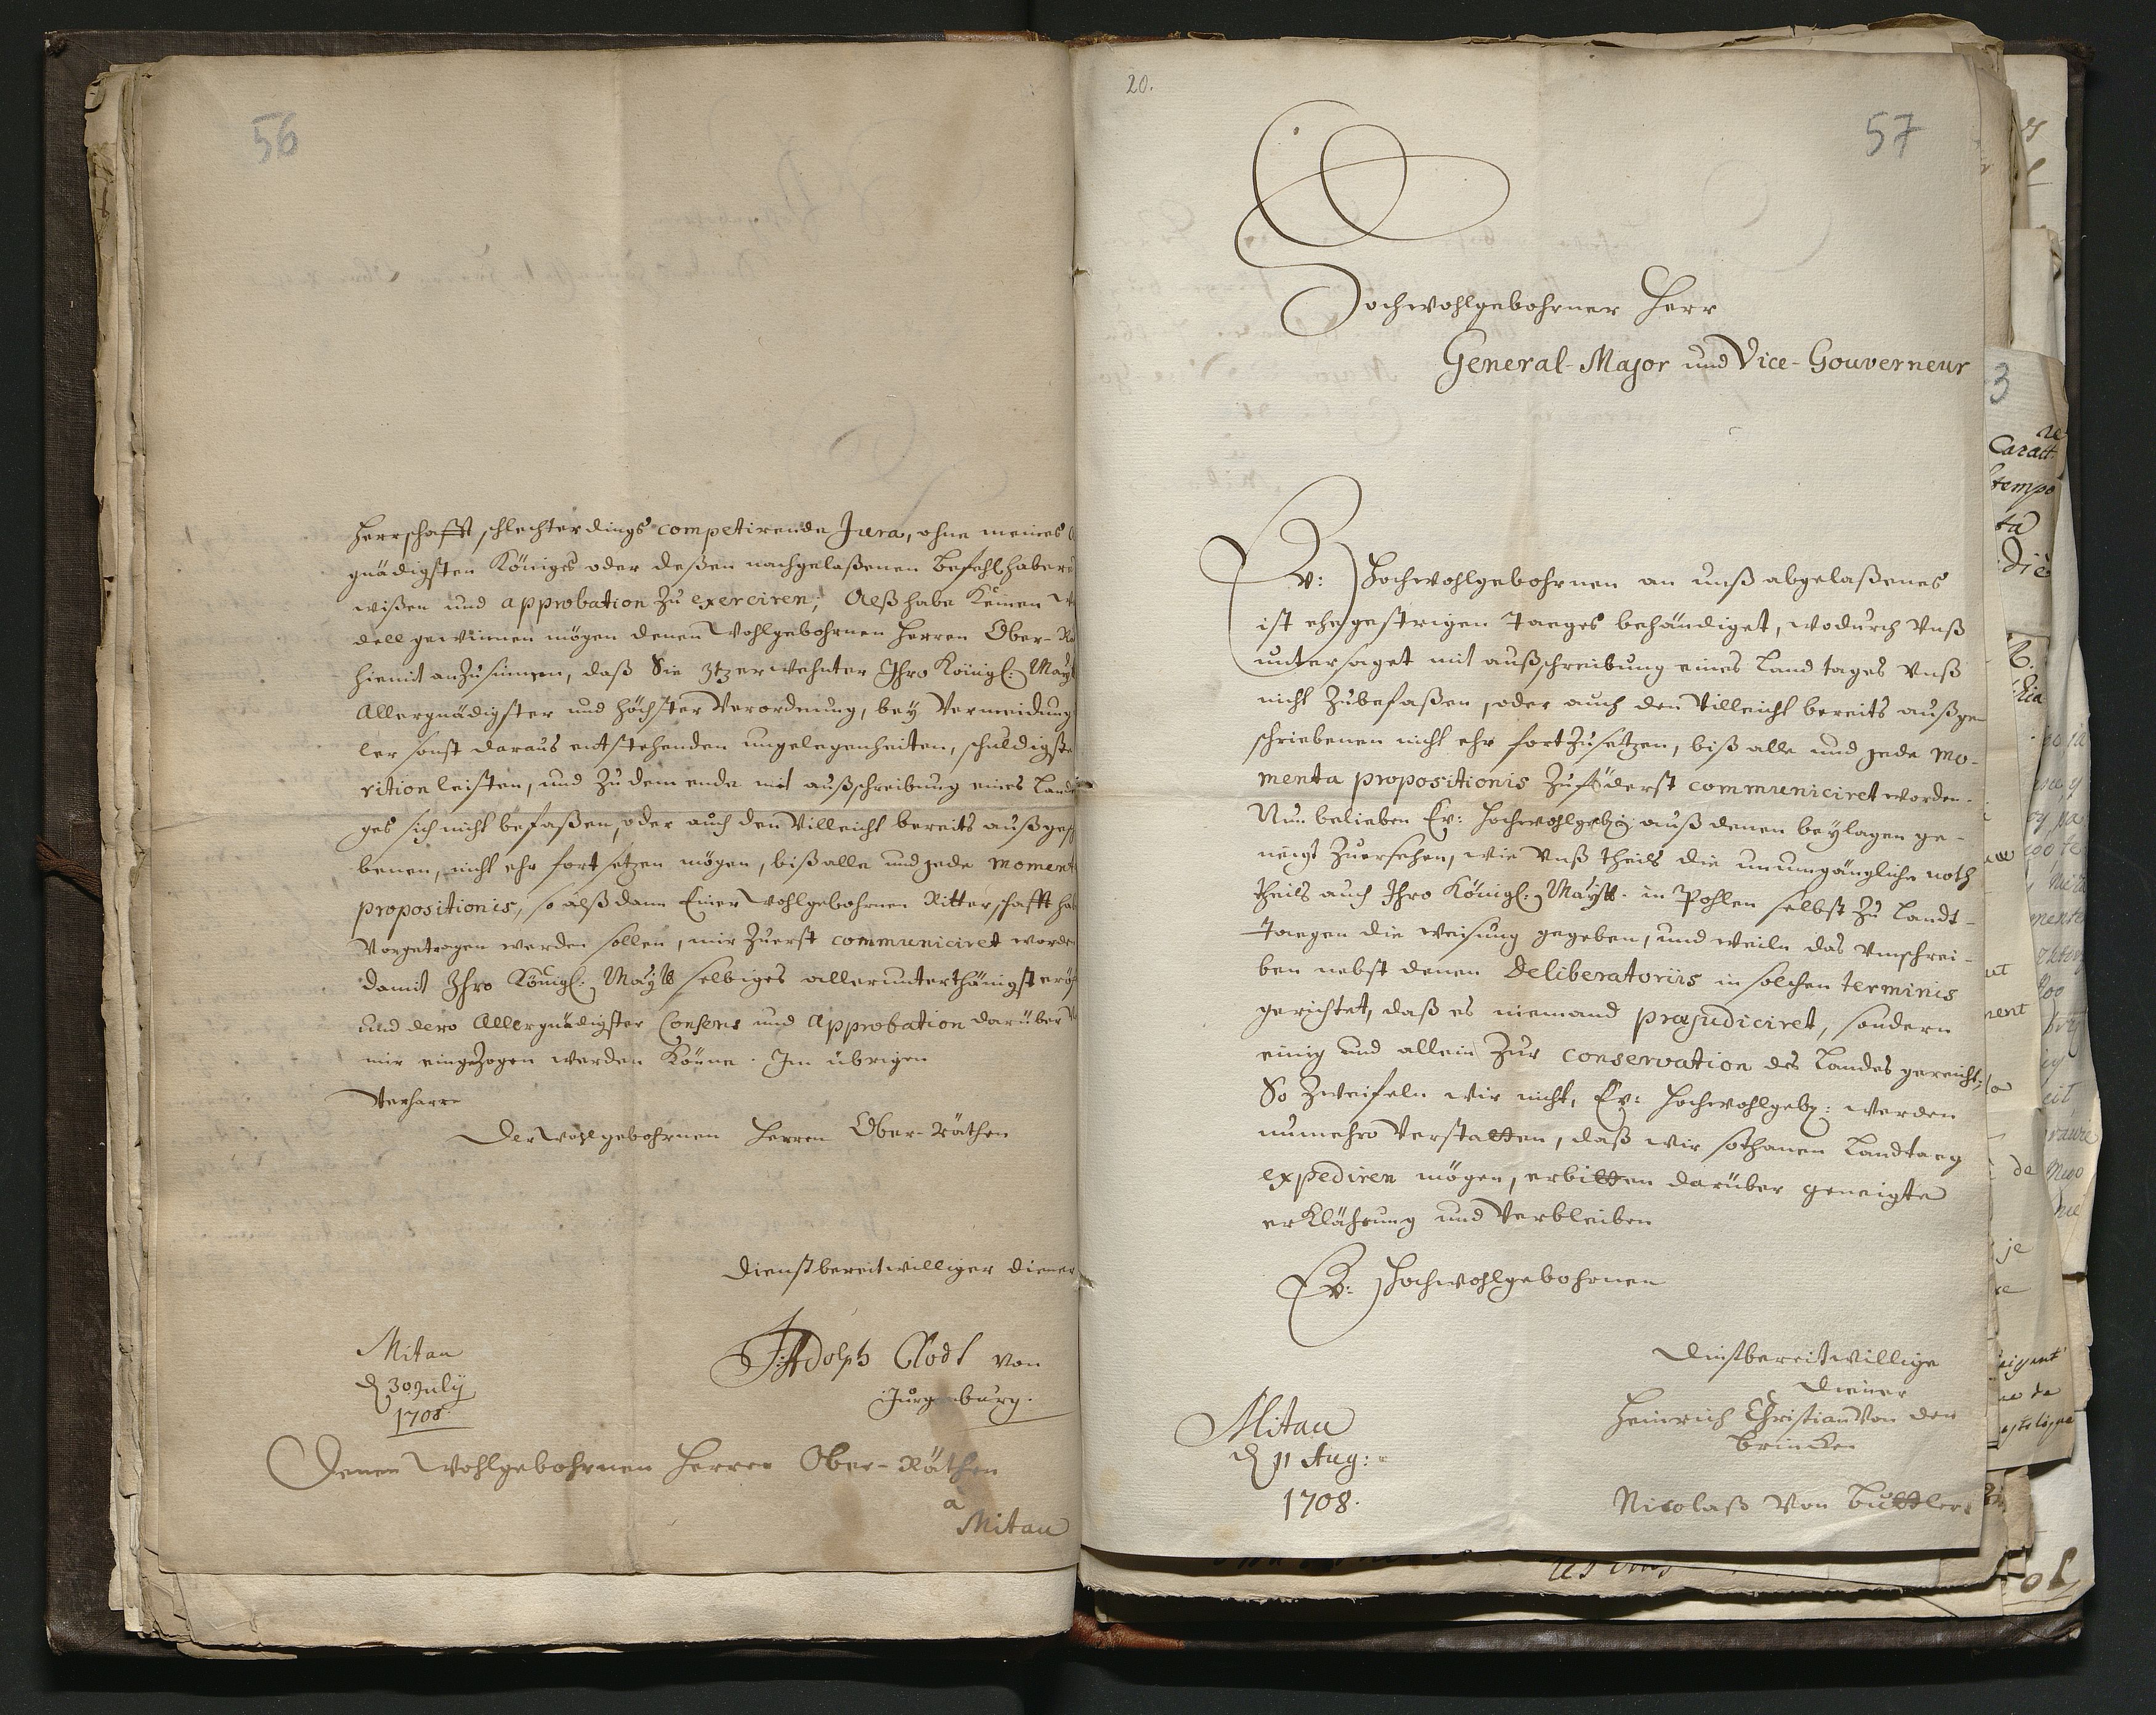 56
Herrschafft schlechterdings competirende Jura, ohne meines
gnädigsten Königes oder deßen nachgelaßenen Befehlhabere
wißen und approbation zu exerciren; Alß habe Keinen
dell gewinnen mögen denen Wohlgebohrnen Herren Ober-
hiemit anzusinnen, daß Sie Itzerwehnter Ihro Königl: Mayt
Allergnädigster und höchster Verordnung, bey Vermeidung
ler sonst daraus entstehenden ungelegenheiten, schuldigste
rition leisten, und zu dem ende mit außschreibung eines Landt
ges sich nicht befaßen, oder auch den Villeicht bereits außgesch
benen, nicht ehe fortsetzen mögen, biß alle und jede moment
propositionis, so alßdann Einer Wohlgebohrnen Ritterschafft
Vorgetragen werden sollen, mir Zuerst communiciret worden
damit Ihro Königl: Maytt selbiges allerunterthänigst eröf
und dero Allergnädigster Consens und Approbation darüber
mir eingezogen werden Könne. Im übrigen
Verharre
Der Wohlgebohrnen Herren Ober-Räthen
Dienstbereitwilliger diener
Mitau
d 30 July
1708.
Adolph Clodt von
Jürgensburg.
Denen Wohlgebohrnen Herren Ober-Räthen
a
Mitau
20.
57
Hochwohlgebohrner Herr
General-Major und Vice-Gouverneur
Ew: Hochwohlgebohrnen an unß abgelaßenes
ist ehegestrigen Taeges behändiget, wodurch Unß
untersaget mit außschreibung eines Landtages Unß
nicht Zubefaßen, oder auch den Villeicht bereits außge
schriebenen nicht ehe fortzusetzen, biß alle und jede mo-
menta propositionis Zuföderst communiciret worden.
Nun belieben Ew: Hochwohlgeb: auß denen beylagen ge-
neigt Zuersehen, wie Unß theils die unumgängliche noth
theils auch Ihro Königl: Maytt. in Pohlen selbst zu Landt-
Taegen die weisung gegeben, und weiln das Umschrei-
ben nebst denen Deliberatoriis in solchen terminis
gerichtet, daß es niemand præjudiciret, sondern
einig und allein Zur conservation des Landes gereicht;
So Zweifeln wir nicht, Ew: Hochwohlgeb: werden
numehro Verstatten, daß wir sothanen Landtaeg
expediren mögen, erbitten darüber geneigte
erKlährung und Verbleiben
Ew: Hochwohlgebohrnen
Dinstbereitwillige
Diener
Heinrich Christian Von den
Brincken
Mitau
d 11 Aug:
1708.
Nicolaß Von Buttler
3
Caract
tempo
ta
die